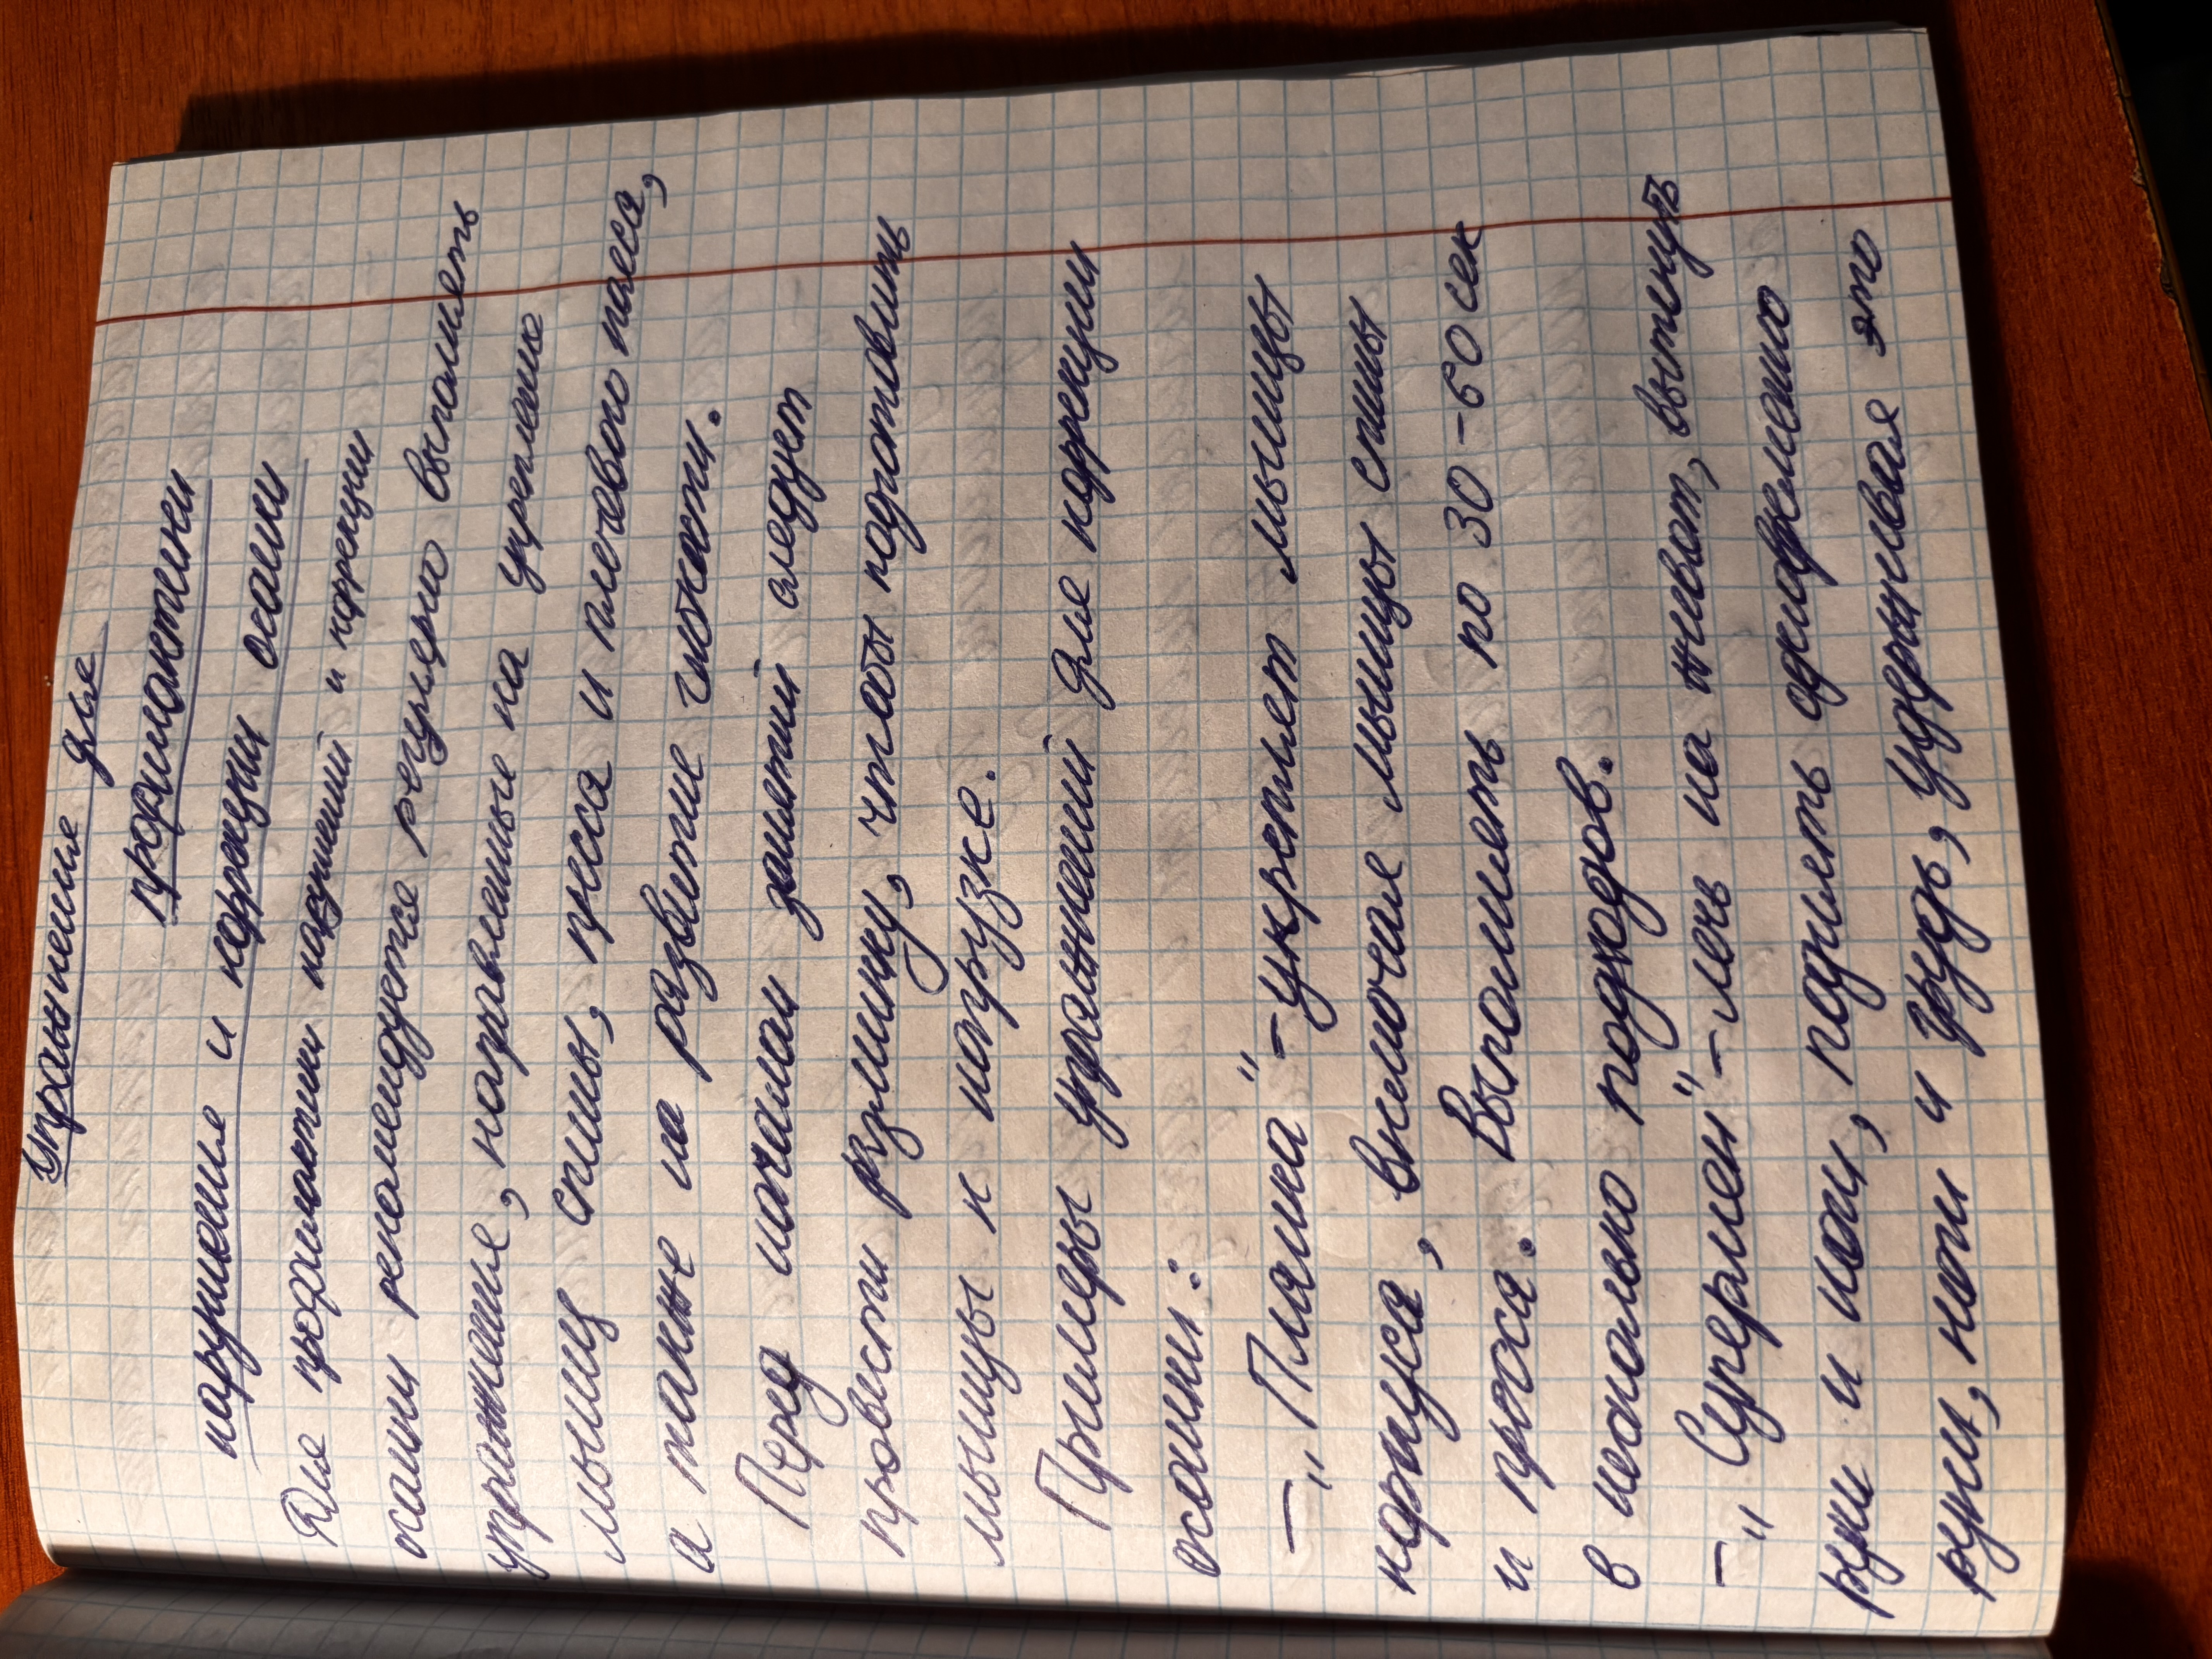 Упражнения для
профилактики
нарушения и коррекции осанки
Для профилактики нарушений и коррекции
осанки рекомендуется регулярно выполнять
упражнения, направленные на укрепление
мышц спины, пресса и плечевого пояса,
а также на развитие гибкости.
Перед началом занятий следует
провести разминку, чтобы подготовить
мышцы к нагрузке.
Примеры упражнений для коррекции
осанки:
– „Планка" – укрепляет мышцы
корпуса, включая мышцы спины
и пресса. Выполнять по 30-60 сек
в несколько подходов.
– „Супермен" – лечь на живот, вытянуть
руки и ноги, поднять одновременно
руки, ноги и грудь, удерживая это